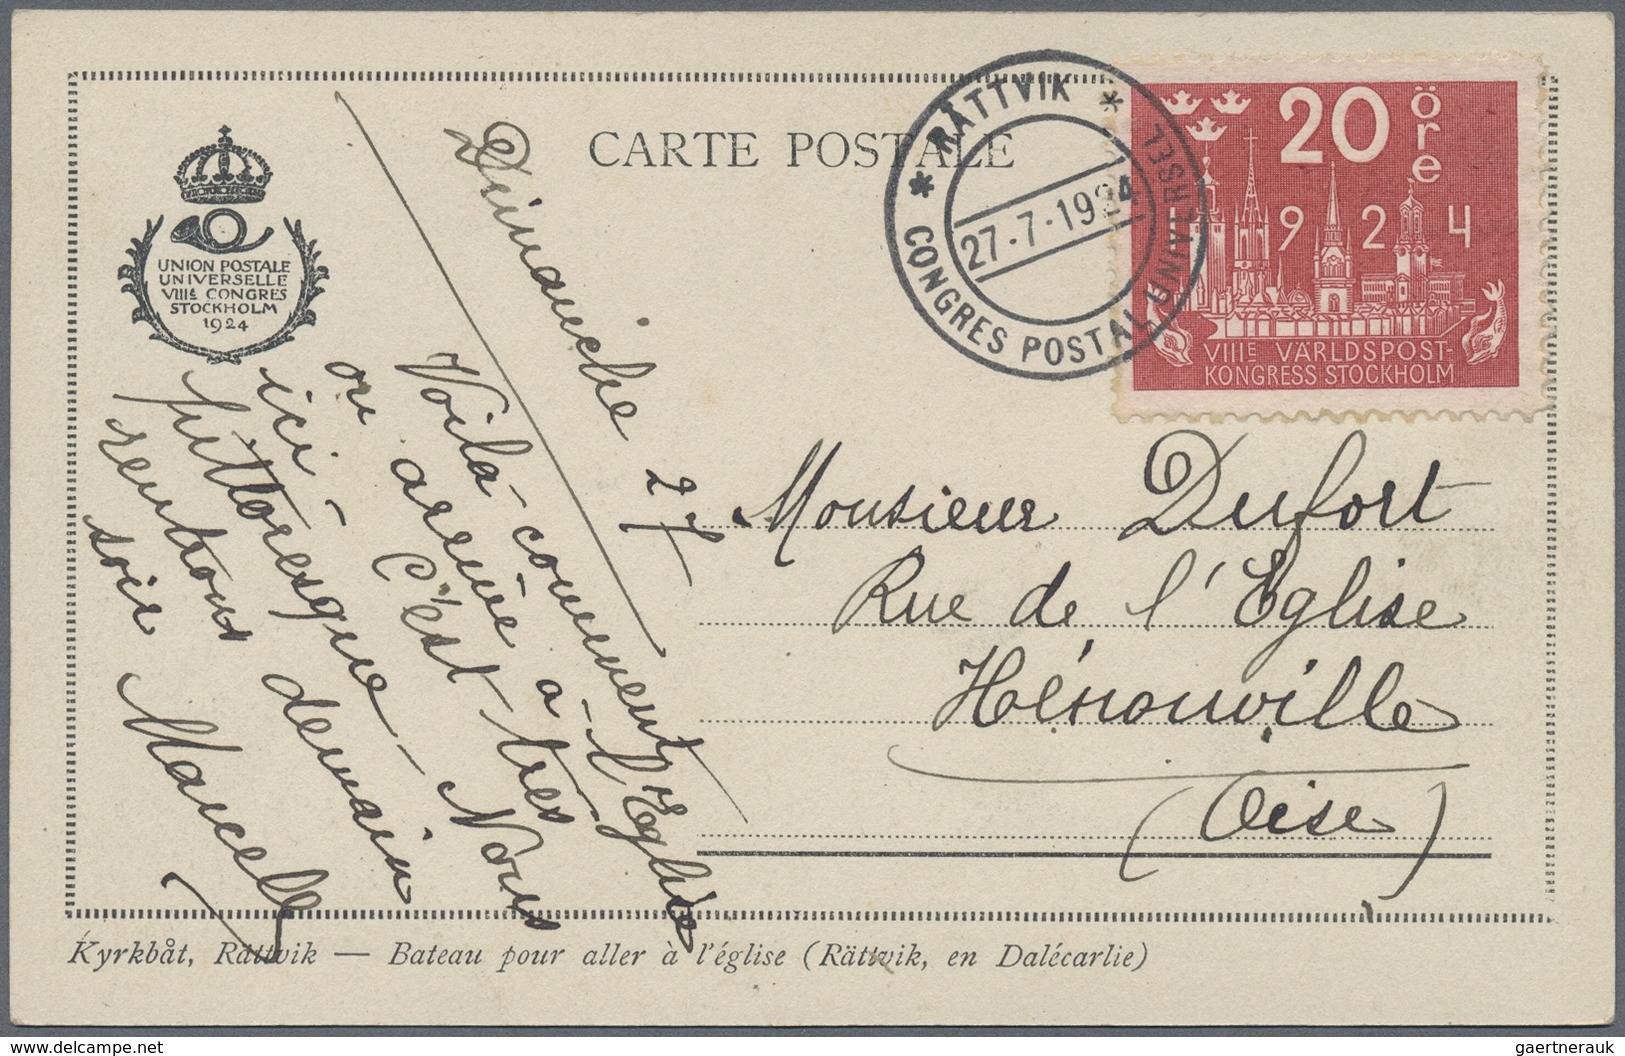 CARTE POSTALE
UNION POSTALE
UNIVERSELLE
VIIIE CONGRES
STOCKHOLM
1924
* RÄTTVIK *
27.-7.-1924
CONGRES POSTAL UNIVERSEL
20 öre
1924
VIIIE VÄRLDSPOST-
KONGRESS STOCKHOLM
Dimanche 27
Voilà comment
on arrive à l'Eglise
ici - C'est très
pittoresque - Nous
rentrons demain
soir
Marcelle
Monsieur Dufort
Rue de l'Eglise
Hénonville
(Oise)
Kyrkbåt, Rättvik — Bateau pour aller à l'église (Rättvik, en Dalécarlie)
gaertnerauk